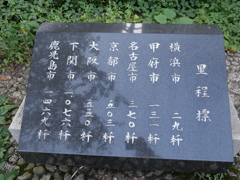 里程標
横浜市 二九粁
甲府市 一三一粁
名古屋市 三七〇粁
京都市 五〇三粁
大阪市 五五〇粁
下関市 一〇七六粁
鹿児島市 一四六九粁